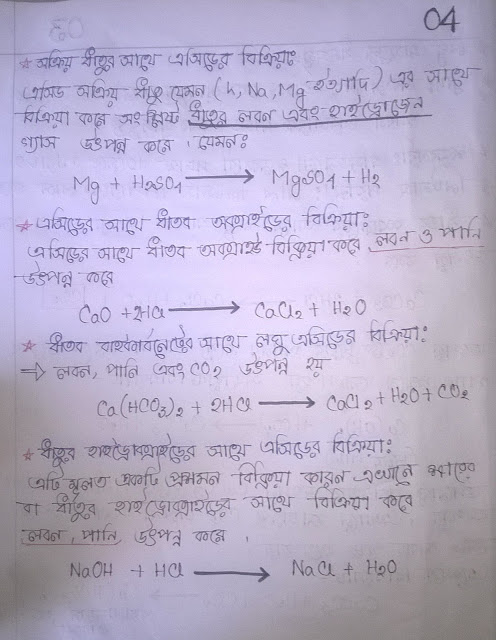 04
* সক্রিয় ধাতুর সাথে এসিডের বিক্রিয়াঃ
এসিড সক্রিয় ধাতু যেমন (K, Na, Mg ইত্যাদি) এর সাথে
বিক্রিয়া করে সংশ্লিষ্ট ধাতুর লবন এবং হাইড্রোজেন
গ্যাস উৎপন্ন করে । যেমনঃ
Mg + H2SO4 → MgSO4 + H2
* এসিডের সাথে ধাতব অক্সাইডের বিক্রিয়া:
এসিডের সাথে ধাতব অক্সাইড বিক্রিয়া করে লবন ও পানি
উৎপন্ন করে
CaO + 2HCl → CaCl2 + H2O
* ধাতব বাইকার্বনেটের সাথে লঘু এসিডের বিক্রিয়া:
⇒ লবন, পানি এবং CO2 উৎপন্ন হয়
Ca(HCO3)2 + 2HCl → CaCl2 + H2O + CO2
* ধাতুর হাইড্রোক্সাইডের সাথে এসিডের বিক্রিয়া:
এটি মূলত একটি প্রশমন বিক্রিয়া কারন এখানে ক্ষারের
বা ধাতুর হাইড্রোক্সাইডের সাথে বিক্রিয়া করে
লবন, পানি উৎপন্ন করে ।
NaOH + HCl → NaCl + H2O